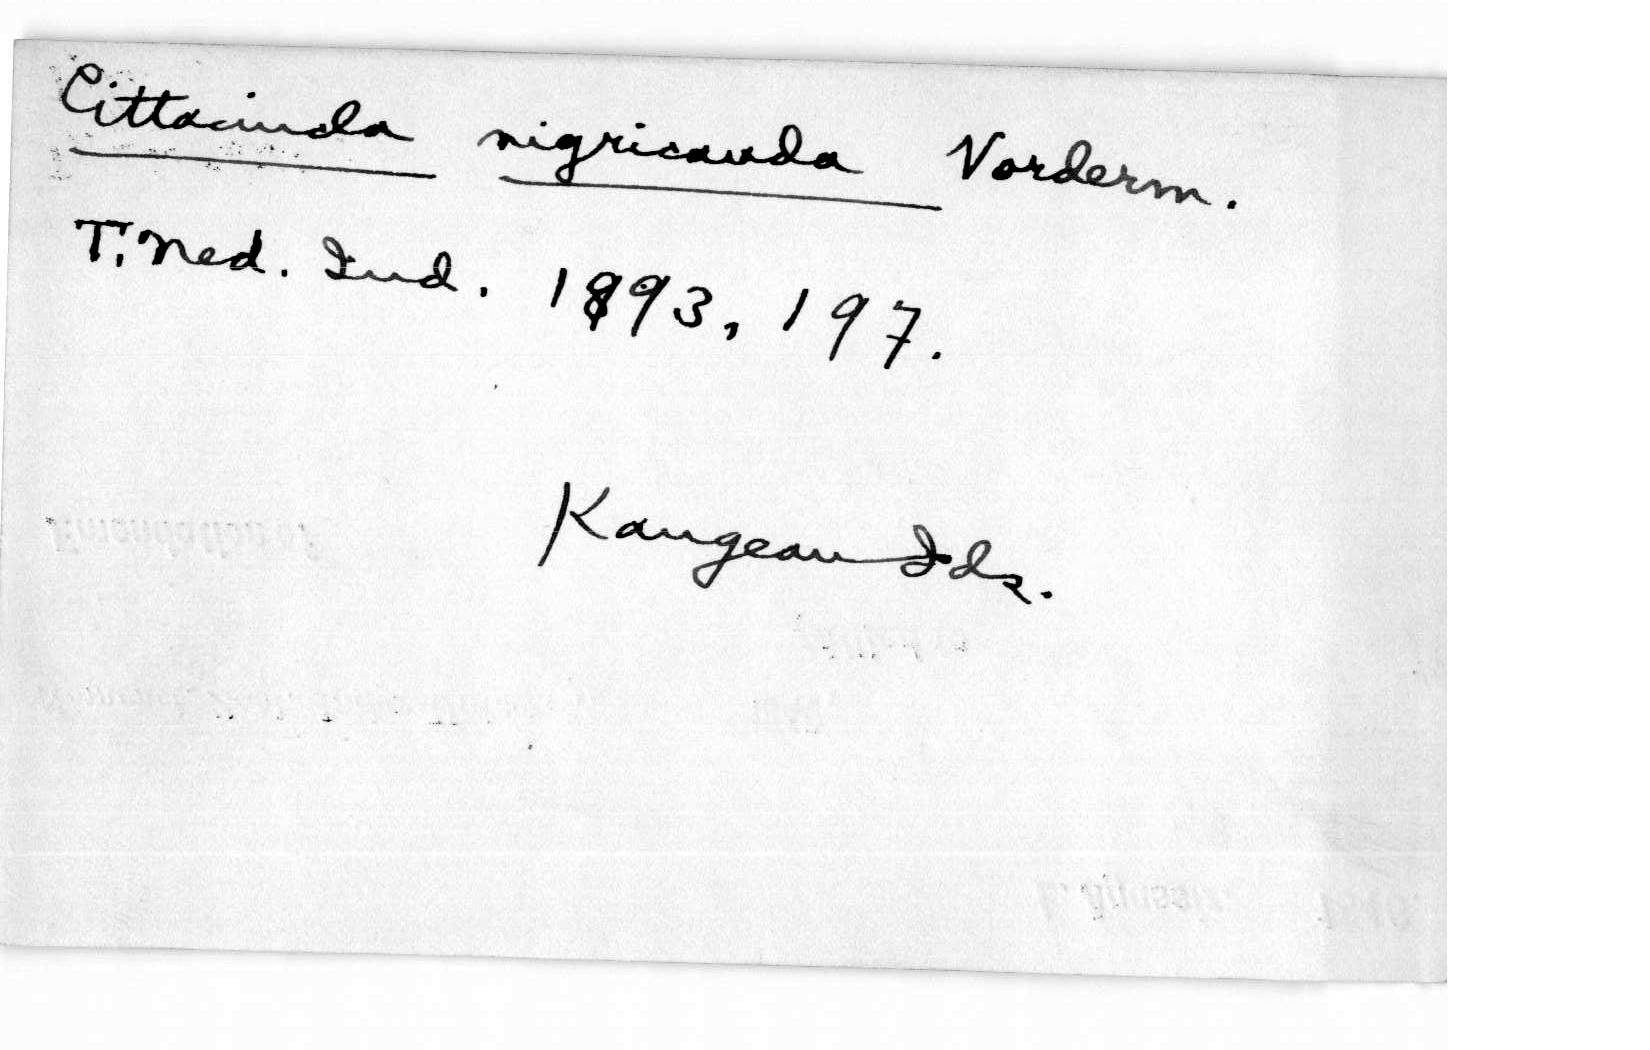 Cittocincla nigricauda Vorderm.
T. Ned. Ind. 1893, 197.
Kangean Ids.